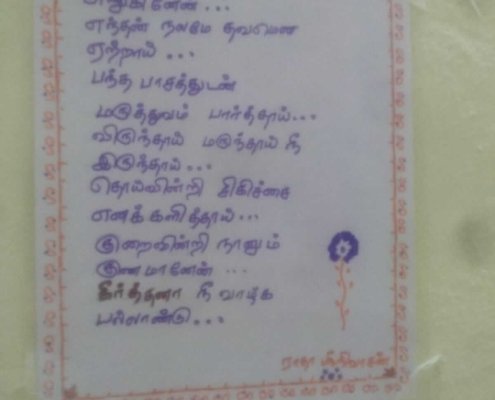 எந்தன் நலமே தவமென
ஏற்றாய் ...
பந்த பாசத்துடன்
மருத்துவம் பார்த்தாய்...
விருந்தாய் மருந்தாய் நீ
இருந்தாய்...
தொய்வின்றி சிகிச்சை
எனக்களித்தாய்...
குறைவின்றி நானும்
குணமானேன் ...
கீர்த்தனா நீ வாழ்க
பல்லாண்டு...
ராதா ஸ்ரீநிவாசன்